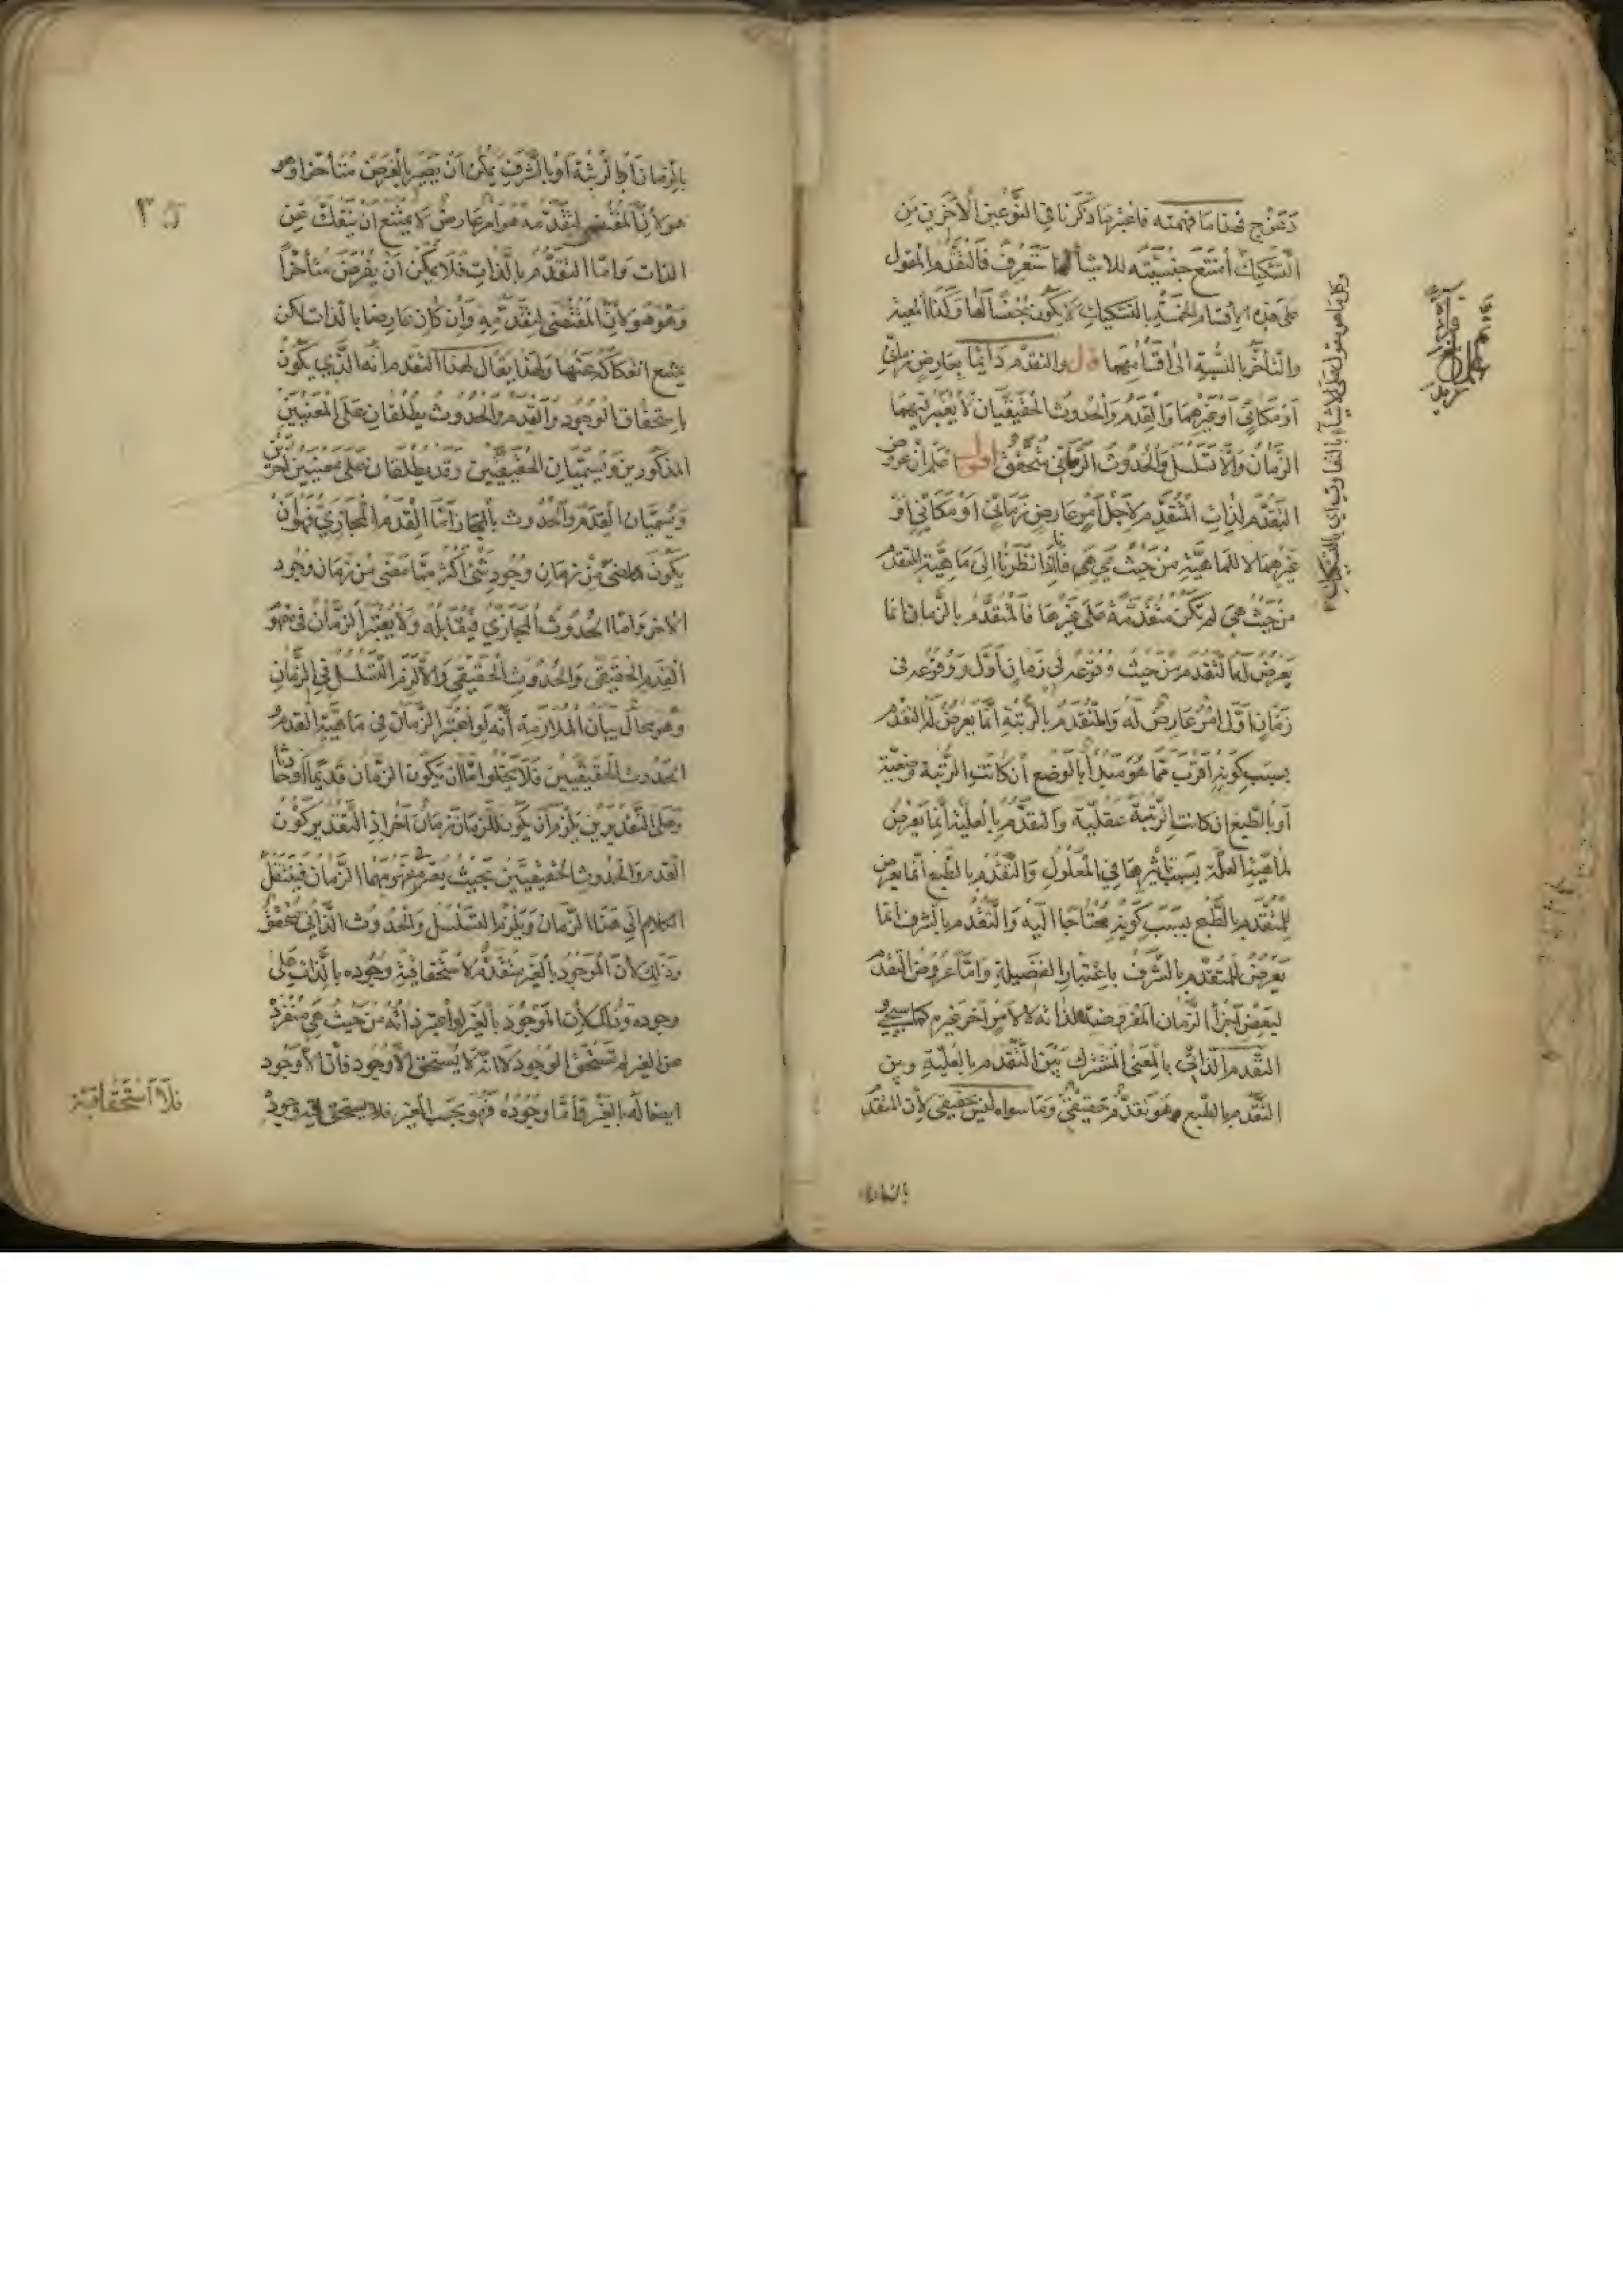 فهذا ما فهمته فاعتبر ما ذكرنا في النوعين الآخرين من
التشكيك امتنع جنسيته للاشياء لما ستعرف فالتقدم المقول
على هذه الاقسام الخمسة بالتشكيك لا يكون جنسا لها وكذا المعية
والتأخر بالنسبة الى اقسامهما قال والتقدم دائما بعارض زماني
او مكاني او غيرهما والقدم والحدوث الحقيقيان لا يعتبر فيهما
الزمان والا تسلسل والحدوث الزماني متحقق اقول اعلم ان عروض
التقدم لذات المتقدم لاجل امر عارض زماني او مكاني او
غيرهما لا للماهية من حيث هي هي فانا اذا نظرنا الى ماهية المتقدم
من حيث هي لم تكن متقدمة على غيرها فالمتقدم بالزمان انما
يعرض له التقدم من حيث وقوعه في زمان اول ووقوعه في
زمان اول امر عارض له والمتقدم بالرتبة انما يعرض له التقدم
بسبب كونه اقرب مما هو مبدأ بالوضع ان كانت الرتبة وضعية
او بالطبع ان كانت الرتبة عقلية والتقدم بالعلية انما يعرض
لماهية العلة بسبب تأثيرها في المعلول والتقدم بالطبع انما يعرض
للمتقدم بالطبع بسبب كونه محتاجا اليه والتقدم بالشرف انما
يعرض للمتقدم بالشرف باعتبار الفضيلة واما عروض التقدم
لبعض اجزاء الزمان المفروضة لذاته لا لامر آخر غيره كما سيجئ
التقدم الذاتي بالمعنى المشترك بين التقدم بالعلية وبين
التقدم بالطبع هو تقدم حقيقي وما سواه ليس حقيقي لان المتقدم
بالزمان
وكل ما هو مقول على الاشياء بالتفاوت اي بالتشكيك
بالزمان او بالرتبة او بالشرف يمكن ان يصير بالفرض متأخرا وهو
هو لان المقتضي لتقدمه هو امر عارض لا يمتنع ان ينفك عن
الذات واما التقدم بالذات فلا يمكن ان يفرض متأخرا
وهو هو لان المقتضي لتقدمه وان كان عارضا بالذات لكن
يمتنع انفكاكه عنها ولهذا يقال لهذا التقدم انه الذي يكون
باستحقاق الوجود والقدم والحدوث يطلقان على المعنيين
المذكورين ويسميان الحقيقيين وقد يطلقان على معنيين آخرين
ويسميان القدم والحدوث بالمجاز اما القدم المجازي فهو ان
يكون ما مضى من زمان وجود شئ اكثر مما مضى من زمان وجود
الآخر واما الحدوث المجازي فيقابله ولا يعتبر الزمان في مفهوم
القدم الحقيقي والحدوث الحقيقي والا لزم التسلسل في الزمان
وهو محال بيان الملازمة انه لو اعتبر الزمان في ماهية القدم و
الحدوث الحقيقيين فلا يخلو اما ان يكون الزمان قديما او حادثا
وعلى التقديرين يلزم ان يكون للزمان زمان آخر اذ التقدير كون
القدم والحدوث الحقيقيين بحيث يعتبر في مفهومهما الزمان فينتقل
الكلام الى هذا الزمان ويلزم التسلسل والحدوث الذاتي متحقق
وذلك لان الموجود بالغير متقدم لا استحقاقية وجوده بالذات على
وجوده وذلك لان الموجود بالغير لو اعتبر ذاته من حيث هي منفرد
عن الغير لم تستحق الوجود لا انه لا يستحق الا وجود فان اللاوجود
ايضا له بالغير واما وجوده فهو بحسب الغير فلا يستحق وجود
فلا استحقاقية